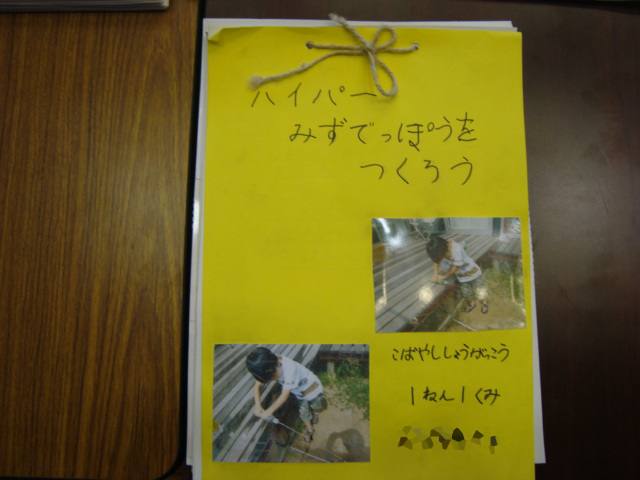 ハイパー
みずでっぽうを
つくろう
こばやししょうがっこう
1ねん1くみ